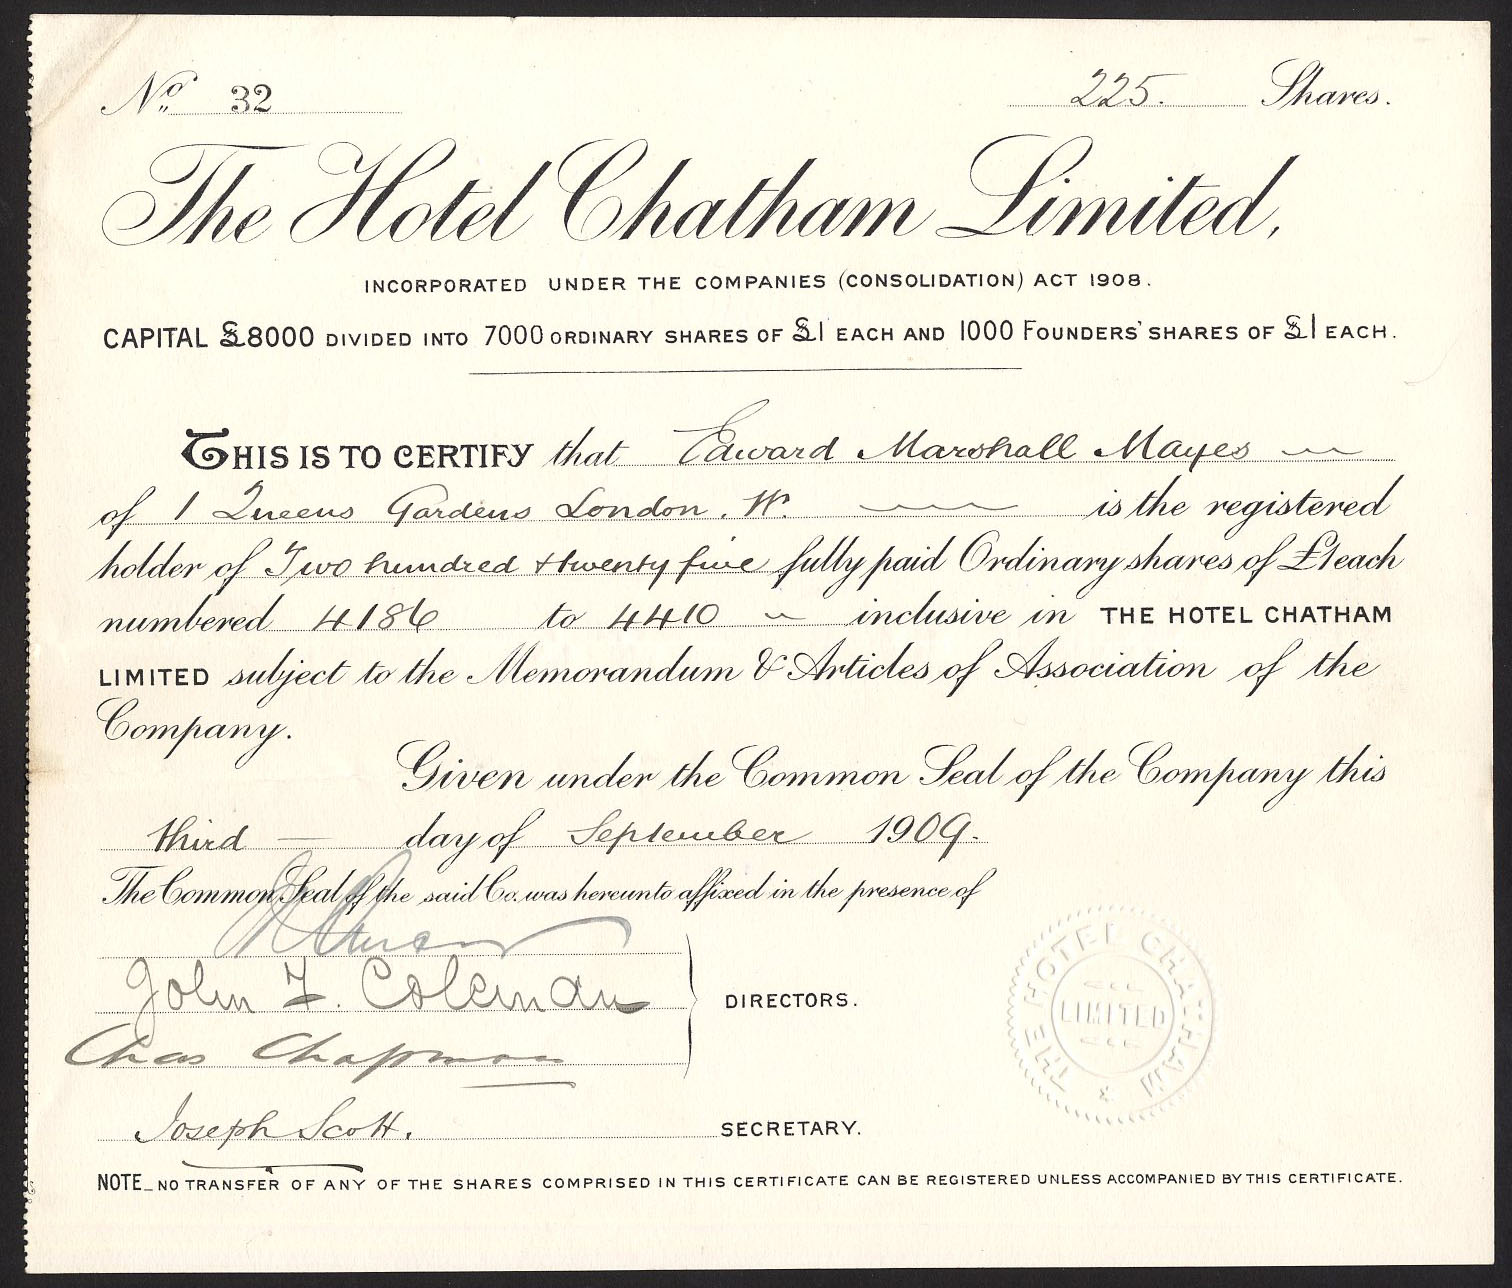 No. 32 225. Shares.
The Hotel Chatham Limited,
INCORPORATED UNDER THE COMPANIES (CONSOLIDATION) ACT 1908.
CAPITAL £8000 DIVIDED INTO 7000 ORDINARY SHARES OF £1 EACH AND 1000 FOUNDERS' SHARES OF £1 EACH.
THIS IS TO CERTIFY that Edward Marshall Mayes
of 1 Queens Gardens London. W. is the registered
holder of Two hundred & twenty five fully paid Ordinary shares of £1 each
numbered 4186 to 4410 inclusive in THE HOTEL CHATHAM
LIMITED subject to the Memorandum & Articles of Association of the
Company.
Given under the Common Seal of the Company this
third day of September 1909.
The Common Seal of the said Co. was hereunto affixed in the presence of
John F. Coleman
DIRECTORS.
Chas Chapman
Joseph Scott. SECRETARY.
THE HOTEL CHATHAM
LIMITED
NOTE_NO TRANSFER OF ANY OF THE SHARES COMPRISED IN THIS CERTIFICATE CAN BE REGISTERED UNLESS ACCOMPANIED BY THIS CERTIFICATE.